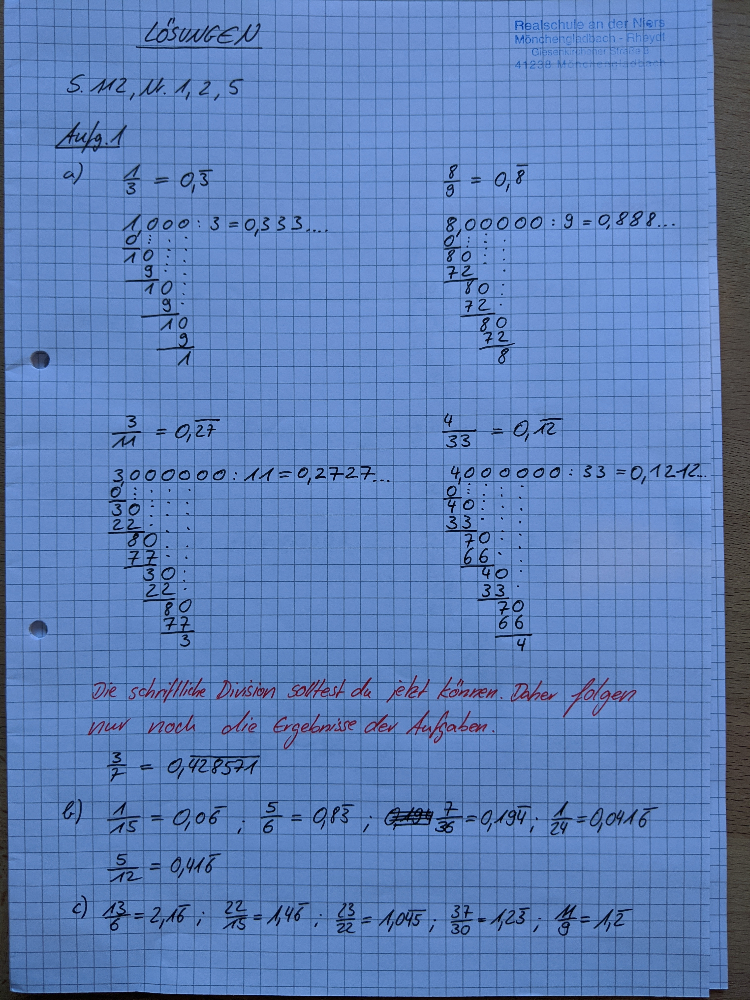 LÖSUNGEN
Realschule an der Niers
Mönchengladbach - Rheydt
Giesenkirchener Straße
41238 Mönchengladbach
S. 112, Nr. 1, 2, 5
Aufg. 1
a) 1/3 = 0,3̅
1,000 : 3 = 0,333....
0
10
9
10
9
10
9
1
8/9 = 0,8̅
8,00000 : 9 = 0,888...
0
80
72
80
72
80
72
8
3/11 = 0,2̅7̅
3,000000 : 11 = 0,2727...
0
30
22
80
77
30
22
80
77
3
4/33 = 0,1̅2̅
4,000000 : 33 = 0,1212...
0
40
33
70
66
40
33
70
66
4
Die schriftliche Division solltest du jetzt können. Daher folgen
nur noch die Ergebnisse der Aufgaben.
3/7 = 0,4̅2̅8̅5̅7̅1̅
b) 1/15 = 0,06̅ ; 5/6 = 0,83̅ ; 0,194 7/36 = 0,194̅ ; 1/24 = 0,0416̅
5/12 = 0,416̅
c) 13/6 = 2,16̅ ; 22/15 = 1,46̅ ; 23/22 = 1,04̅5̅ ; 37/30 = 1,23̅ ; 11/9 = 1,2̅